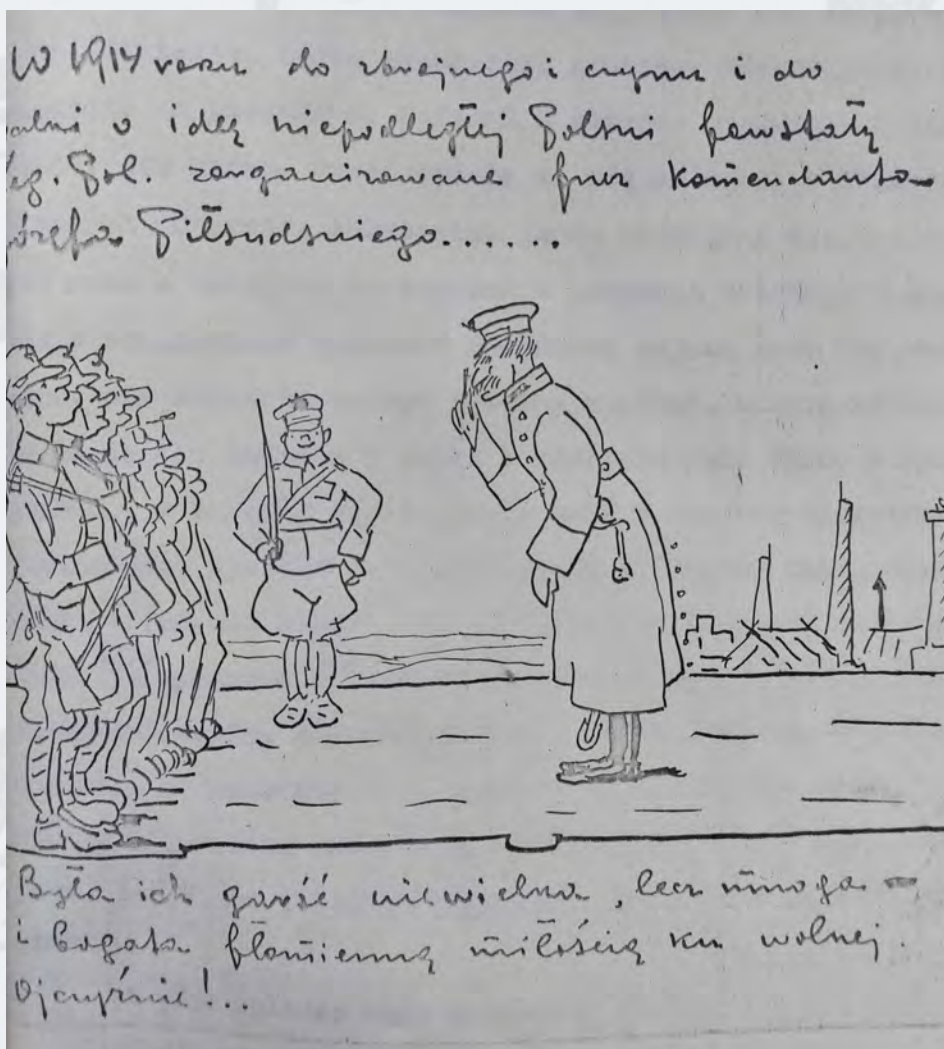 W 1914 roku do zbrojnego i czynu i do
alni o ideę niepodległej Polski powstały
eg. Pol. zorganizowane przez komendanta
ózefa Piłsudskiego......
Była ich garść niewielka, lecz mnoga –
i bogata płomienną miłością ku wolnej
Ojczyźnie!..